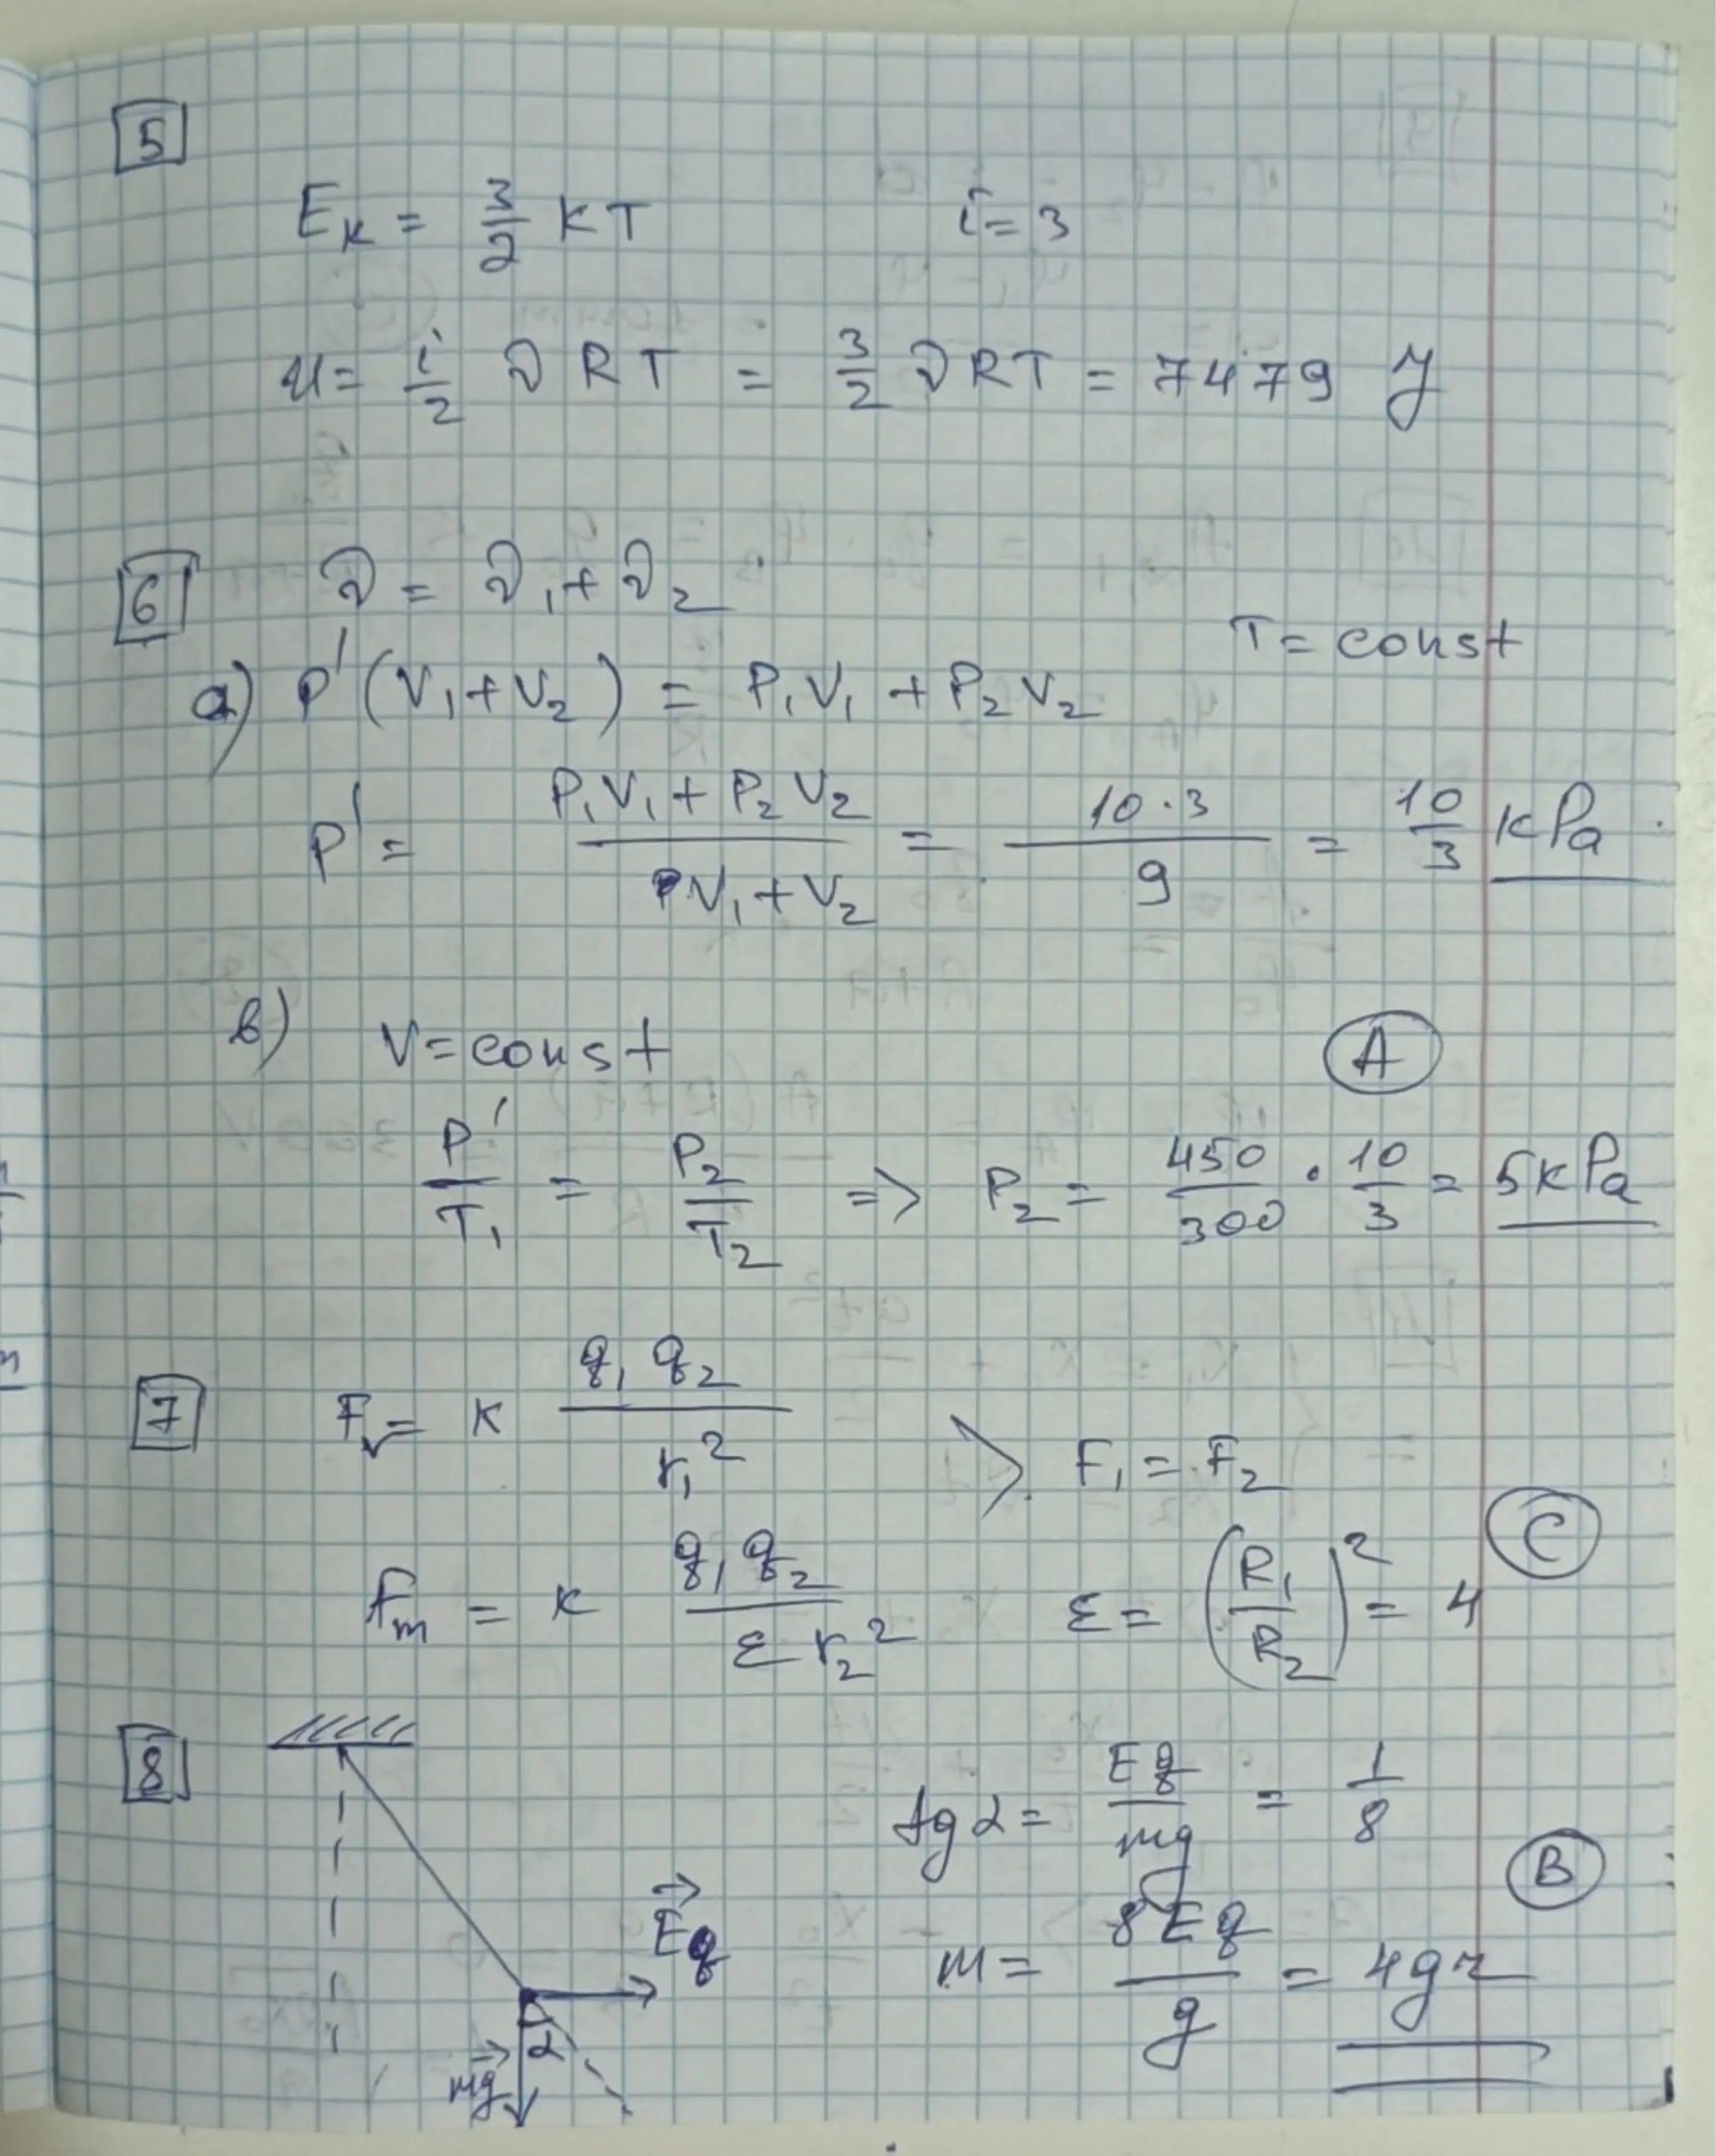 5
E_K = 3/2 KT    i = 3
U = i/2 ν R T = 3/2 ν R T = 7479 J
6    ν = ν_1 + ν_2
T = const
a) P'(V_1 + V_2) = P_1 V_1 + P_2 V_2
P' = (P_1 V_1 + P_2 V_2)/(V_1 + V_2) = (10 · 3)/9 = 10/3 kPa
b) V = const    A
P'/T_1 = P_2/T_2 => P_2 = 450/300 · 10/3 = 5 kPa
7    F_v = K (q_1 q_2)/(r_1^2)    > F_1 = F_2
C
F_m = K (q_1 q_2)/(ε r_2^2)    ε = (R_1/R_2)^2 = 4
8    tg α = Eq/mg = 1/8
B
Eq
m = 8Eq/g = 4gr
α
mg